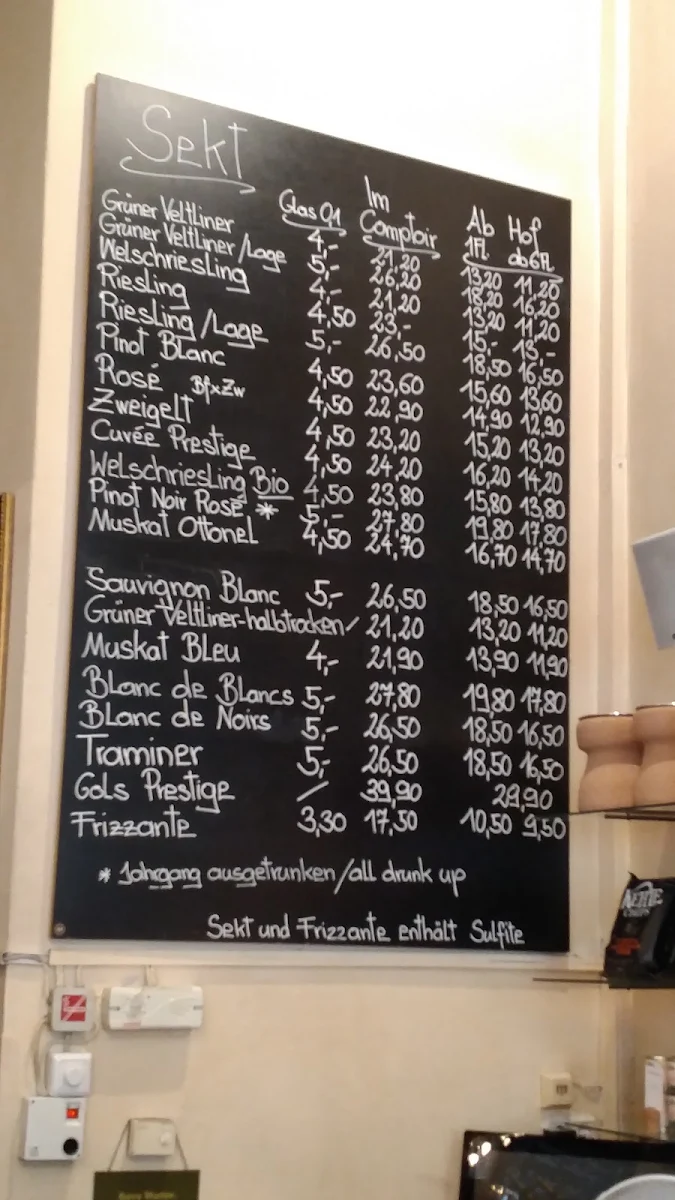 Sekt
Glas 0,1 Im Comptoir Ab Hof
1Fl. ab 6Fl.
Grüner Veltliner 4,- 21,20 13,20 11,20
Grüner Veltliner/Lage 5,- 26,20 18,20 16,20
Welschriesling 4,- 21,20 13,20 11,20
Riesling 4,50 23,- 15,- 13,-
Riesling/Lage 5,- 26,50 18,50 16,50
Pinot Blanc 4,50 23,60 15,60 13,60
Rosé BfxZw 4,50 22,90 14,90 12,90
Zweigelt 4,50 23,20 15,20 13,20
Cuvée Prestige 4,50 24,20 16,20 14,20
Welschriesling Bio 4,50 23,80 15,80 13,80
Pinot Noir Rosé * 5,- 27,80 19,80 17,80
Muskat Ottonel 4,50 24,70 16,70 14,70
Sauvignon Blanc 5,- 26,50 18,50 16,50
Grüner Veltliner-halbtrocken / 21,20 13,20 11,20
Muskat Bleu 4,- 21,90 13,90 11,90
Blanc de Blancs 5,- 27,80 19,80 17,80
Blanc de Noirs 5,- 26,50 18,50 16,50
Traminer 5,- 26,50 18,50 16,50
Gols Prestige / 39,90 29,90
Frizzante 3,30 17,50 10,50 9,50
* Jahrgang ausgetrunken/all drunk up
Sekt und Frizzante enthält Sulfite